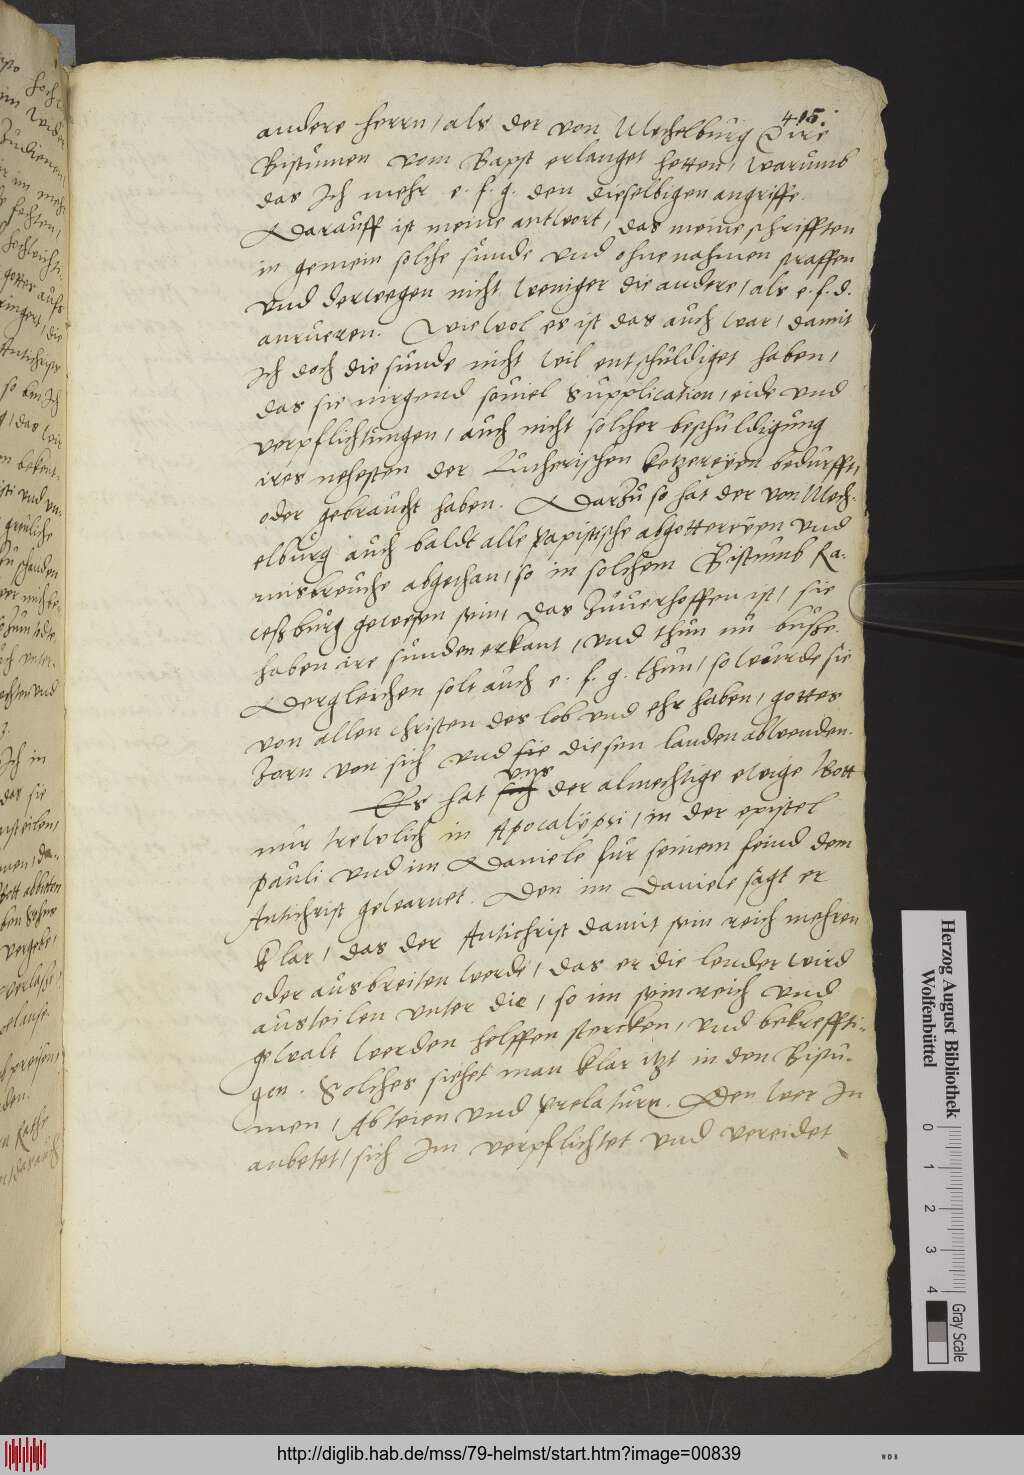 415.
andere herrn, als der von Mechelburg Eire
Bistumen vom Bapst erlanget hetten, warumb
das Ich mehr e. f. g. den dieselbigen angriffe.
Darauff ist meine antwort, das meine schrifften
in gemein solche sunde und ohne nahmen straffen
und derwegen nicht weniger die andere, als e. f. g.
anrueren. Wiewol es ist das auch war, damit
Ich doch die sunde nicht wil entschuldiget haben,
das sie nirgend souiel Supplication, eide und
verpflichtungen, auch nicht solcher beschuldigung
ires nehesten der Lutherischen ketzereyen bedurfft,
oder gebraucht haben. Darzu so hat der von Mech-
elburg auch baldt alle papistische abgottereyen und
misbreuche abgethan, so in solchem Bistumb Ra-
ceßburg gewesen sein, das zuuerhoffen ist, sie
haben ire sunden erkant, und thun nu buße.
Dergleichen solt auch e. f. g. thun, so wurde sie
von allen christen des lob und ehr haben, gottes
zorn von sich und sie diesen landen abwenden.
Es hat sich uns der almechtige ewige Gott
nur trewlich in Apocalÿpsi, in der epistel
pauli und im Daniele fur seinem feind dem
Antichrist gewarnet. Den im Daniele sagt er
klar, das der Antichrist damit sein reich mehren
oder ausbreiten werde, das er die lender wird
austeilen unter die, so im sein reich und
gewalt werden helffen stercken, und bekreffti-
gen. Solches siehet man klar itzt in den Bistu-
men, Abteien und prelaturn. Den wer In
anbetet, sich Im verpflichtet und vereidet
Herzog August Bibliothek
Wolfenbüttel
0 1 2 3 4
Gray Scale
http://diglib.hab.de/mss/79-helmst/start.htm?image=00839